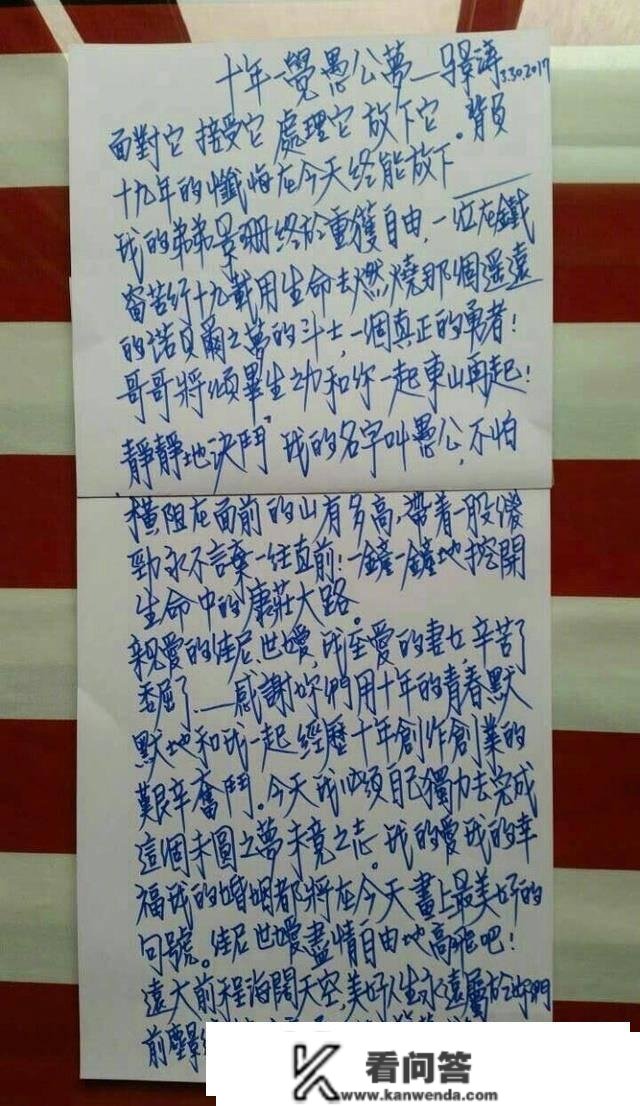 十年一覺愚公夢—景濤 3.30.2017
面對它 接受它 處理它 放下它。背負
十九年的懺悔在今天終能放下——
我的弟弟景珊終於重獲自由,一位在鐵
窗苦行十九載用生命去燃燒那個遥遠
的諾貝爾之夢的斗士,一個真正的勇者!
哥哥將傾畢生之功和你一起東山再起!
靜靜地決鬥"我的名字叫愚公,不怕
橫阻在面前的山有多高,帶着一股傻
勁永不言棄一往直前!一鏟一鏟地挖開
生命中的康莊大路。
親愛的佳尼、世嬡,我至愛的妻女,辛苦了
委屈了——感謝妳們用十年的青春默
默地和我一起經歷十年創作創業的
艱辛奮鬥。今天我必須自己獨力去完成
這個未圓之夢未竟之志。我的愛我的幸
福我的婚姻都將在今天畫上最美好的
句號。佳尼世嬡盡情自由地高飛吧!
遠大前程海闊天空,美好人生永遠屬於妳們
前塵
看问答
www.kanwenda.com